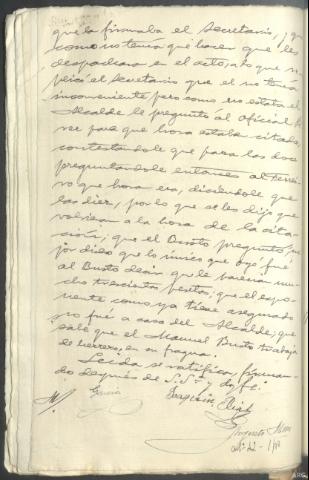 que la firmaba el Secretario, y que
como no tenia que hacer que les
despachara en el acto, a lo que re
plicó el Secretario que el no tenia
inconveniente pero como no estaba el
Alcalde le pregunto al Oficial
ver para que hora estaba citado,
contestandole que para las doce
preguntandole entonces al
vo que hora era, diciendole que
las diez, por lo que se les dijo que
volvieran a la hora de la cita-
ción; que el Busto pregunto
por dicho que lo unico que oyó fué
al Busto decir que le hacian mu-
cho trescientas pesetas; que el expo-
nente como ya tiene asegurado
no fué a casa del Alcalde; que
sabe que el Manuel Busto trabaja
de herrero, en su fragua.
Leida se ratifica, firman-
do después de S.Sª y doy fe.
Garcia Joaquin Elias